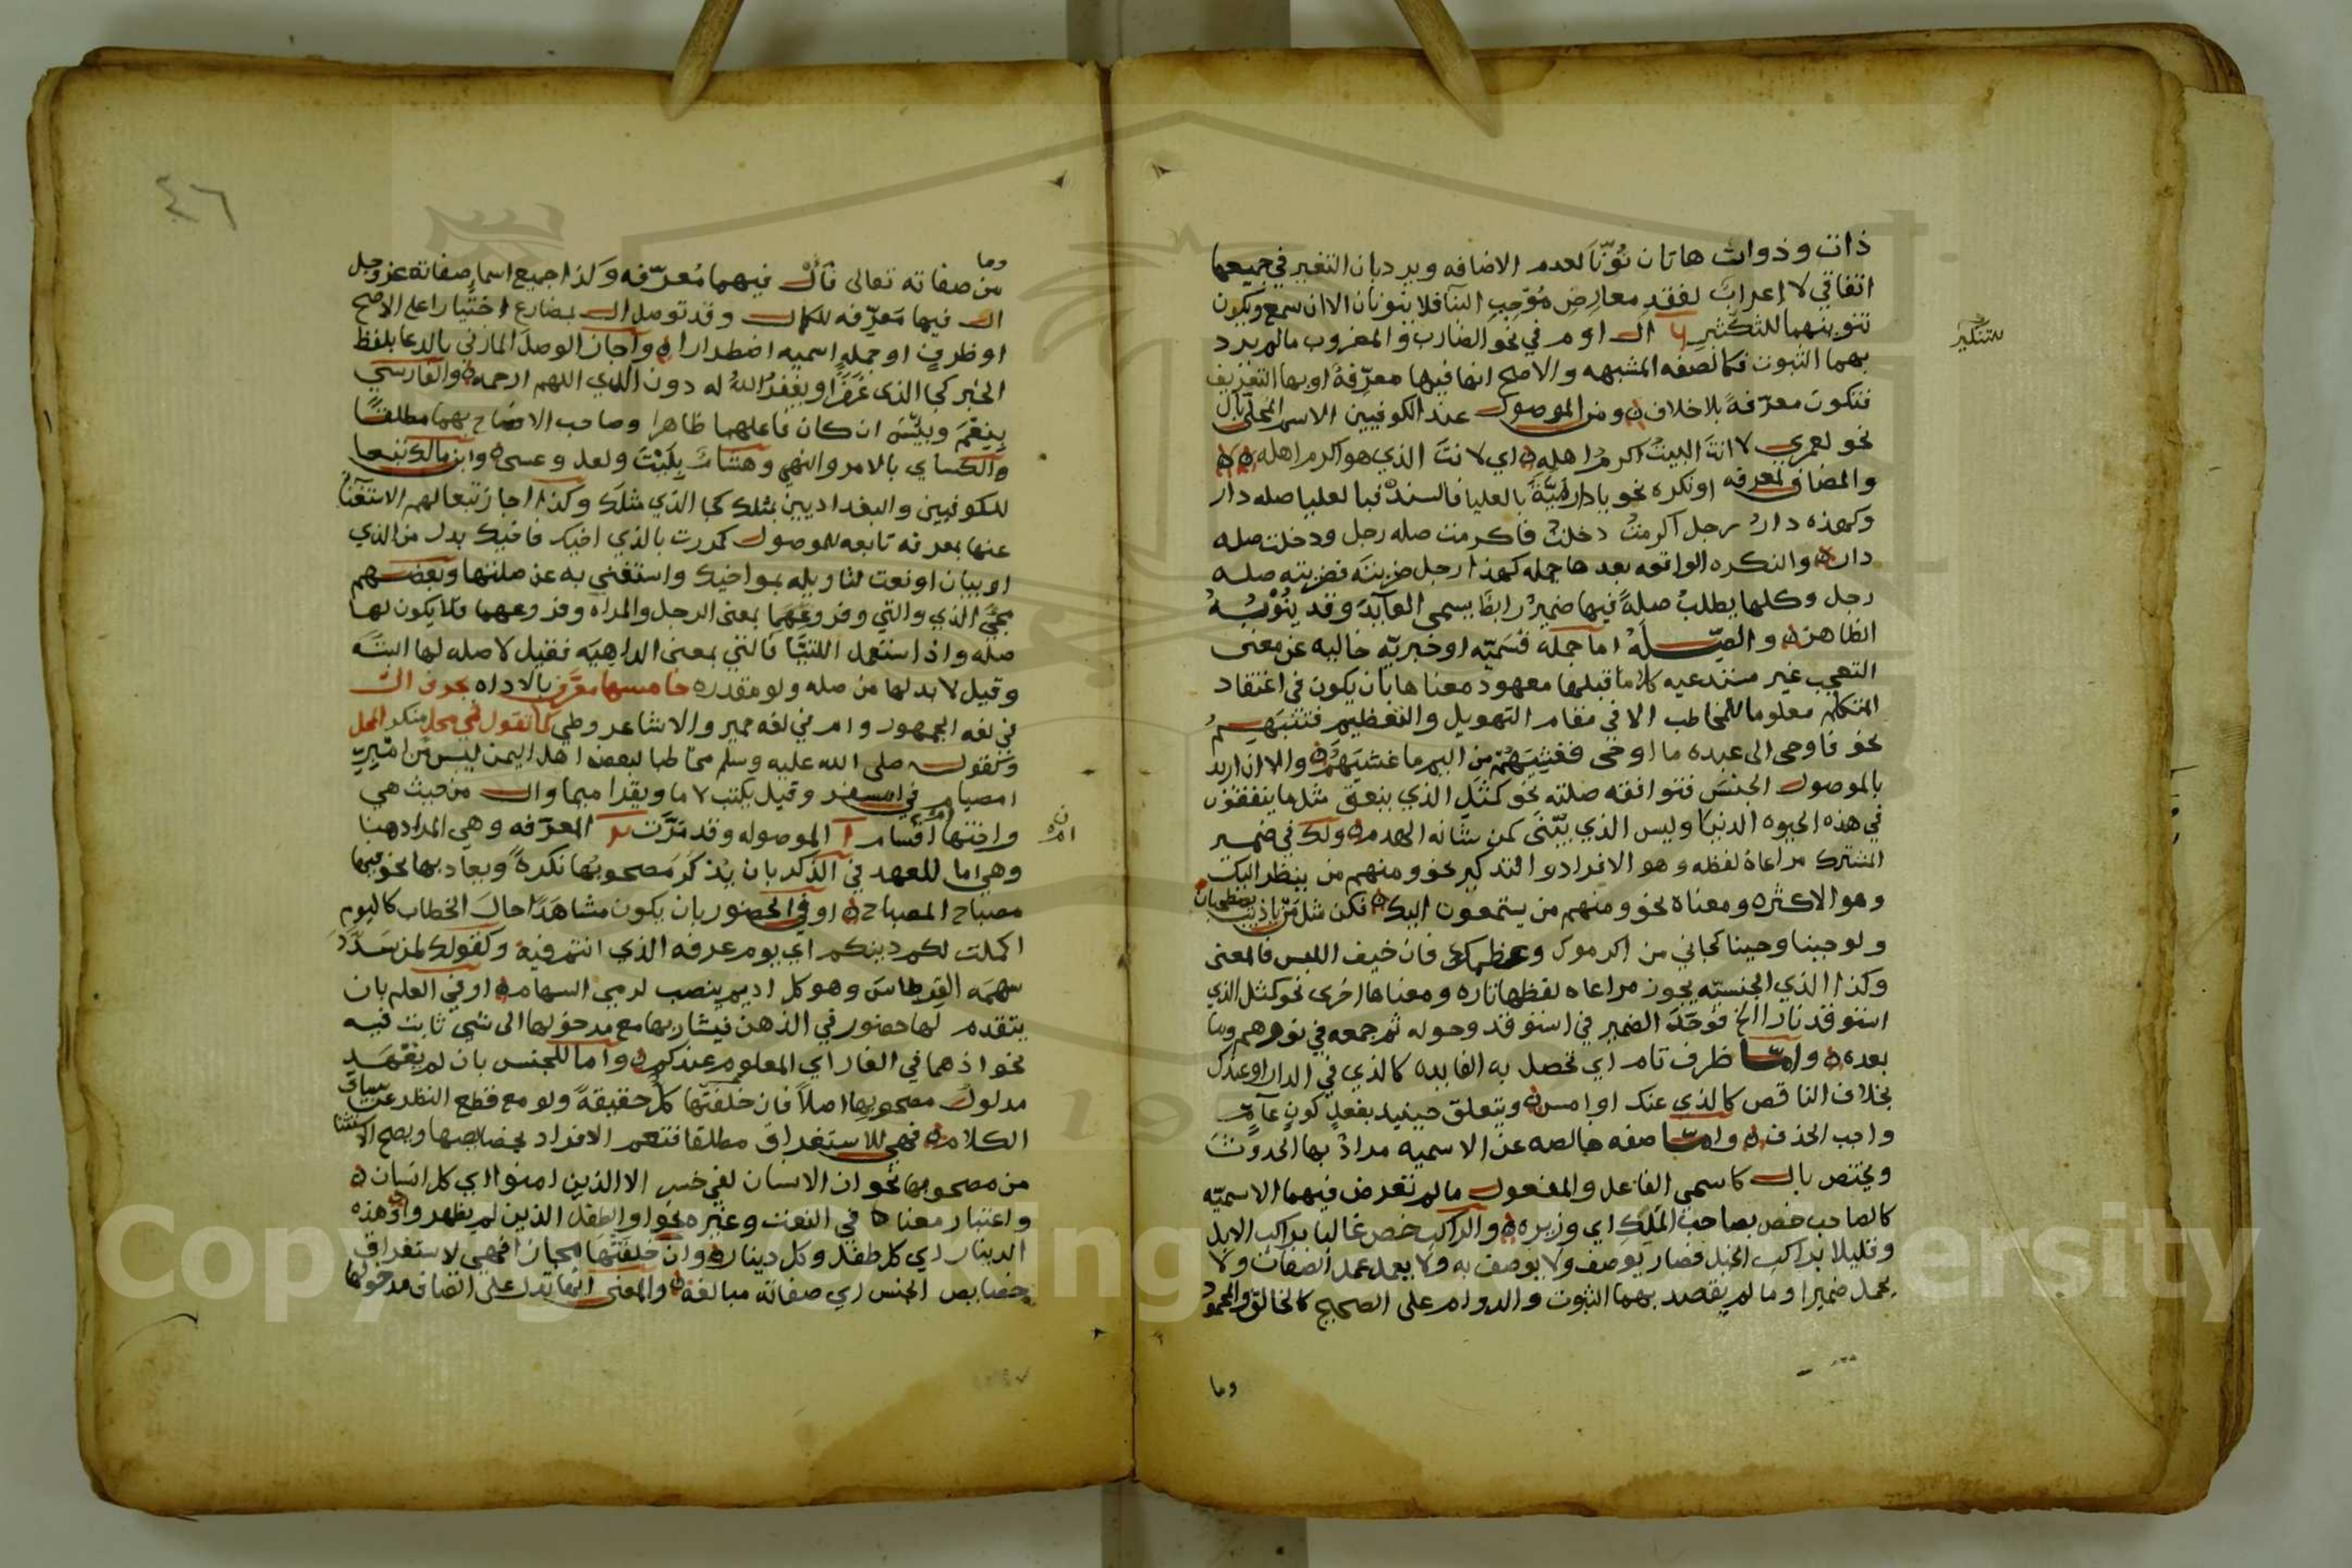 ذات وذوات هاتان نُوّنّا لعدم الاضافه ويرد بان التغير في جميعها
اتفاقي لا إعراب لفقد معارض مُوْجِب البنآ فلا ينونان الا ان سمع ويكون
تنوينهما للتكثير ال او م في نحو الضارب والمضروب ما لم يرد
للتنكير
بهما الثبوت فكالصفه المشبهه والاصح انها فيها معرّفةً او بها التعريف
فتكون معرّفةً بلا خلاف ومن الموصول عند الكوفيين الاسم المحلى بال
نحو لعمري لانتَ البيتُ اكرمُ اهله اي لانت الذي هو اكرم اهله
والمضاف لمعرفه او نكره نحو يا دار ميّةَ بالعليا فالسند فبالعليا صله دار
وكهذه دارُ رجل اكرمتُ دخلتُ فاكرمت صله رجل ودخلت صله
دار والنكره الواقعه بعدها جمله كهذا رجل ضربته فضربته صله
رجل وكلها يطلبُ صلةً فيها ضميرٌ رابطٌ يسمى العآيدَ وقد ينُوْبُهُ
الظاهر والصّلَهُ اما جمله قسَميّه او خبريّه خاليه عن معنى
التعجب غير مستدعيه كلاما قبلها معهود معناها بان يكون في اعتقاد
المتكلم معلوما للمخاطب الا في مقام التهويل والتعظيم فتُبْهَم
نحو فاوحى الى عبده ما اوحى فغشيَهُمْ من اليم ما غشيَهُمْ والا ان اريد
بالموصول الجنس فتوافقه صلته نحو كمثَلِ الذي ينعق مثل ما ينفقون
في هذه الحيوه الدنيا وليس الذي يَبْنَى كمن شانه الهدم ولك في ضمير
المشترك مراعاة لفظه وهو الافراد والتذكير نحو ومنهم من ينظر اليك
وهو الاكثر ومعناه نحو ومنهم من يستمعون اليك نكن مثل مَن يا ذيب يصطحبان
ولو جينا وحينا كجاني من اكرموك وعظمك فان خيف اللبس فالمعنى
وكذا الذي الجنسيّه يجوز مراعاه لفظها تاره ومعناها اخرى نحو كمثل الذي
استوقد نارا الخ فوَحّدَ الضمير في استوقد وحوله ثم جمعه في نورهم وما
بعده وامّا ظرف تام اي تحصل به الفايده كالذي في الدار او عندك
بخلاف الناقص كالذي عنك او امس ويتعلق حينيد بفعلِ كونٍ عآمٍّ
واجب الحذف وامّا صفه خالصه عن الاسميه مرادٌ بها الحدوث
ويختص بال كاسمي الفاعل والمفعول ما لم تعرض فيهما الاسميّه
كالصاحب خص بصاحب المَلِكِ اي وزيره والراكب خص غالبا براكب الابل
وقليلا براكب الخيل فصار يوصف ولا يوصف به ولا يعمل عمل الصفات ولا
يحمل ضميرا وما لم يقصد بهما الثبوت والدوام على الصحيح كالخالق والمحمود
وما
٤٦
وما
من صفاته تعالى فَال فيهما مُعرّفه وَلذا جميع اسما صفاته عز وجل
ال فيها مَعرّفه للكمال وقد توصل ال بمضارع اختيارا على الاصح
او ظرفٍ او جملهٍ اسميه اضطرارا واجاز الوصلَ المازني بالدعا بلفظ
الخبر كجا الذي غَفَرَ او يغفرُ اللهُ له دون الذي اللهم ارحمه والفارسي
بِنِعْمَ وبِئْسَ ان كان فاعلهما ظاهرا وصاحب الافصاح بهما مطلقًا
والكساي بالامر والنهي وهشام بِلَيْتَ ولعل وعسى وابن مالك تبعا
للكوفيين والبغداديين بمثلك كجا الذي مثلك وكذا اجاز تبعا لهم الاستغنآ
عنها بمعرفه تابعه للموصول كمررت بالذي اخيك فاخيك بدل من الذي
او بيان او نعت لتاويله بمواخيك واستغنى به عن صلتها وبعضهم
بجيْ الذي والتي وفروعهَما بمعنى الرجل والمراه وفروعهما فلا يكون لها
صله واذا استعمل اللتيّا فالتي بمعنى الداهيَه فقيل لا صله لها البتَه
وقيل لا بد لها من صله ولو مقدره خامسها معَرّف بالاداه بحرف ال
في لغه الجمهور وام في لغه حمير والاشاعر وطي كما تقول في محل منكر المحل
وكقوله صلى الله عليه وسلم مخاطبا لبعض اهل اليمن ليس من امبر
امصيام في امسفر وقيل يكتب لاما ويقرا ميما وال من حيث هي
ام
واختها اقسام ا الموصوله وقد مَرّت ٢ المعرّفه وهي المراد هنا
وهي اما للعهد في الذكر بان يُذكَر مصحوبُها نكرةً ويعاد بها نحو فيها
مصباح المصباح او في الحضور بان يكون مشاهَدًا حالَ الخطاب كاليوم
اكملت لكم دينكم اي يوم عرفه الذي انتم فيه وكقولك لمن سَدّدَ
سهمَه القرطاسَ وهو كل اديم ينصب لرمي السهام او في العلم بان
يتقدم لها حضور في الذهن فيشار بها مع مدخولها الى شي ثابت فيه
نحو اذ هما في الغار اي المعلوم عندكم واما للجنس بان لم يقصد
مدلول مصحوبها اصلاً فان خلفتْها كلُّ حقيقةً ولو مع قطع النظر عن سياق
الكلام فهي للاستغراق مطلقا فتعم الافراد بخصايصها ويصح الاستثنا
من مصحوبها نحو ان الانسان لفي خسر الا الذين امنوا اي كل انسان
واعتبار معناه في النعت وغيره نحو او الطفل الذين لم يظهروا وهذه
الدينار اي كل طفل وكل دينار وان خلفَتْهَا مجازا فهي لاستغراق
خصايص الجنس اي صفاته مبالغة والمعنى انها تدل على اتصاف مدخولها